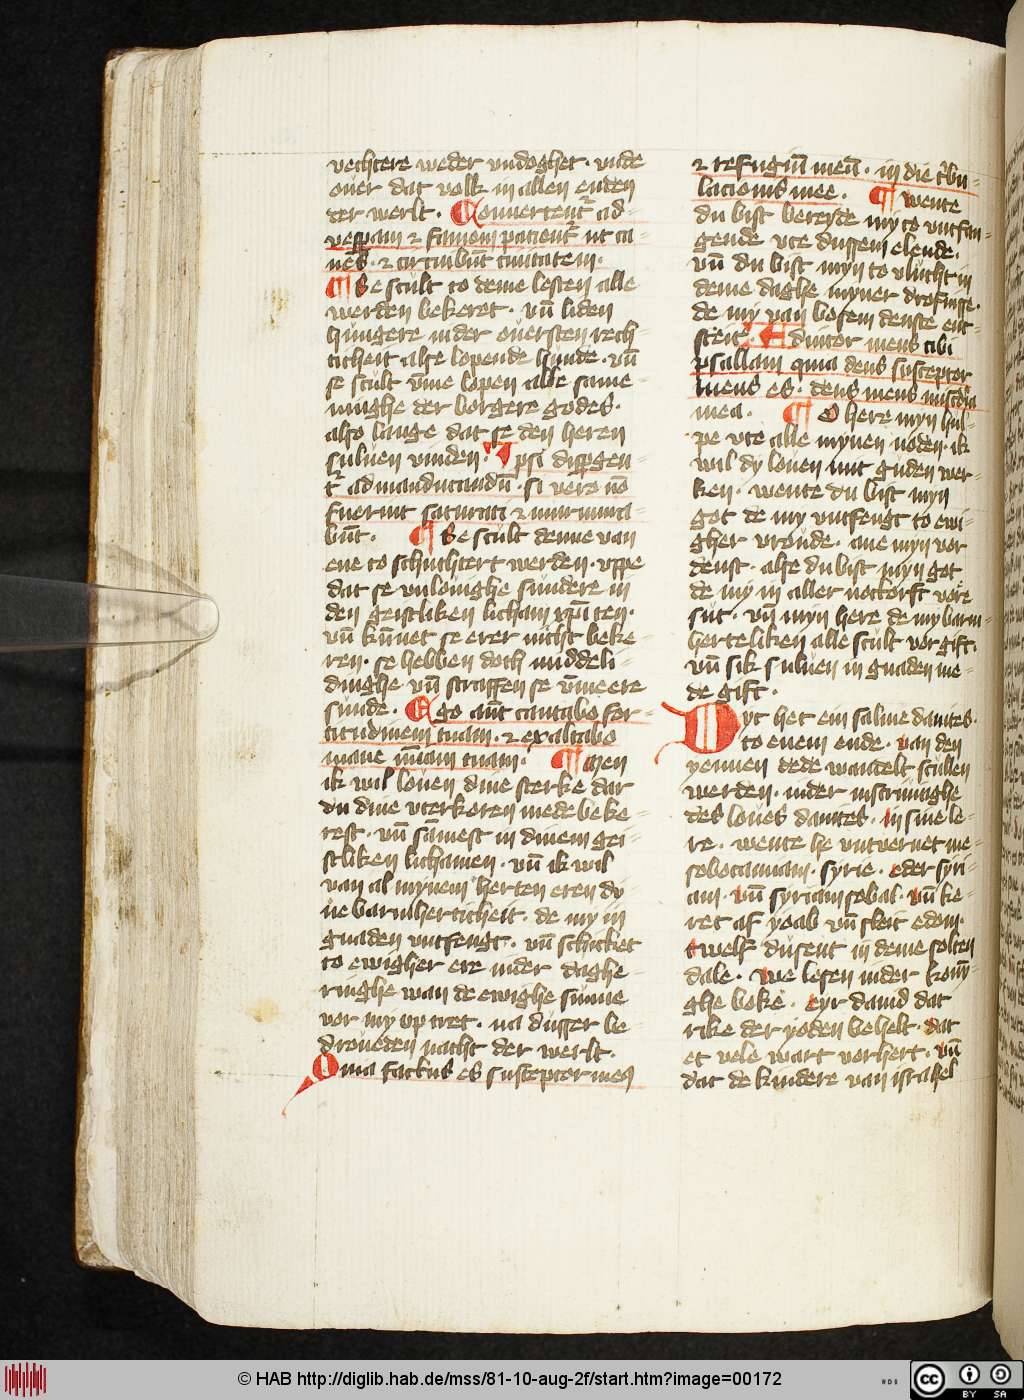 vechtere weder vndoghet · vnde
ouer dat volk in allen enden
der werlt · Conuertent᷑ ad
vesp̄am ⁊ famem patient᷑ ut ca
nes · ⁊ circuibūt ciuitatem ·
¶ Se scult to deme lesten alle
werden bekeret · vn̄ liden
hungere inder ouersten rech
ticheit alse lopende hunde · vn̄
se scult vme lopen alle same
ninghe der borgere godes ·
also lange dat se den heren
suluen vinden · Ipsi disp̄gen
t᷑ ad manducandū · si vero nō
fuerint saturati ⁊ murmura
būt · ¶ Se scult denne van
ene to schuchtert werden · vppe
dat se vnlouighe sundere in
den geistliken licham xp̄i ten ·
vn̄ kunnet se erer nicht beke
ren · se hebben doch middeli
dinghe vn̄ straffen se vm̄e ere
sunde · Ego aūt cantabo for
titudinem tuam · ⁊ exaltabo
mane mīam tuam · ¶ Men
ik wil louen dine sterke dar
du dine vterkoren mede beke
rest · vn̄ sam̄est in dinem gei
stliken lichamen · vn̄ ik wil
van al mynem herten eren dy
ne barmherticheit · de my in
gnaden vntfengt · vn̄ schicket
to ewigher ere inder daghe
ringhe wan de ewighe sunne
vor my vp tret · na dusser be
droueden nacht der werlt ·
Quia factus es susceptor meus
⁊ refugiū meū · in die t̄bu
lacionis mee · ¶ Wente
du bist bereyde my to vntfan
gende vte dussem elende ·
vn̄ du bist myn to vlucht in
deme daghe myner drofnisse ·
de my van bosem denste ent
steit · Adiutor meus tibi
psallam quia deus susceptor
meus es · deus meus misc̄dia
mea · ¶ O here myn hul
pe vte alle mynen noden · ik
wil dy louen mit guden wer
ken · wente du bist myn
got de my vntfengt to ewi
gher vronde · ane myn vor
denst · alse du bist myn got
de my in aller nottorft vore
sut · vn̄ myn here de my barm
herteliken alle scult vorgift ·
vn̄ sik suluen in gnaden me
de gift ·
Dyt het ein salme dauites ·
to enem ende · van den
yennen dede wandelt scullen
werden · inder inscriuighe
des loues dauites · in sine le
re · wente he vntvernet me
sobocamiam · syrie · eder syri
am · vn̄ syriam sobal · vn̄ ke
ret af yoab vn̄ sleit edom ·
twelf dusent in deme solten
dale · We lesen inder konin
ghe boke · eyr dauid dat
rike der yoden behelt · dat
et vele wart vorhert · vn̄
dat de kindere van israhel
© HAB http://diglib.hab.de/mss/81-10-aug-2f/start.htm?image=00172
HAB
cc BY SA